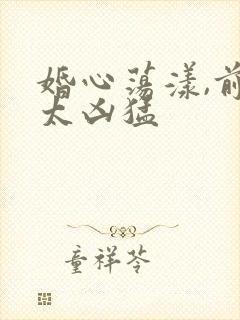 婚心荡漾,前
太凶猛
童祥苓